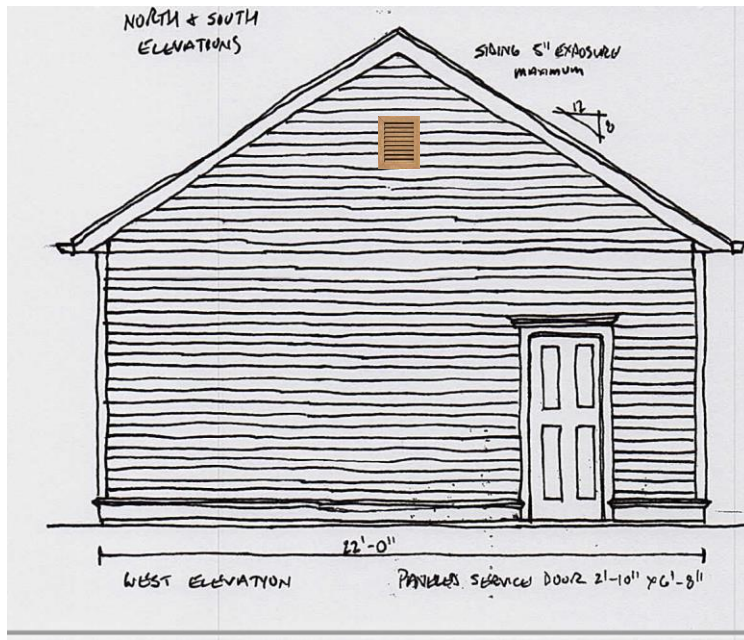 NORTH & SOUTH
ELEVATIONS
SIDING 5" EXPOSURE
MAXIMUM
12
8
22'-0"
WEST ELEVATION
PANELED SERVICE DOOR 2'-10" x 6'-8"